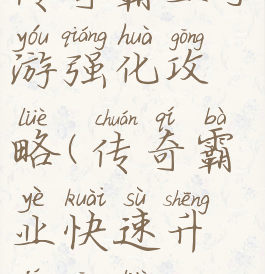 yóu qiáng huà gōng
游强化攻
lüè chuán qí bà
略(传奇霸
yè kuài sù shēng
业快速升